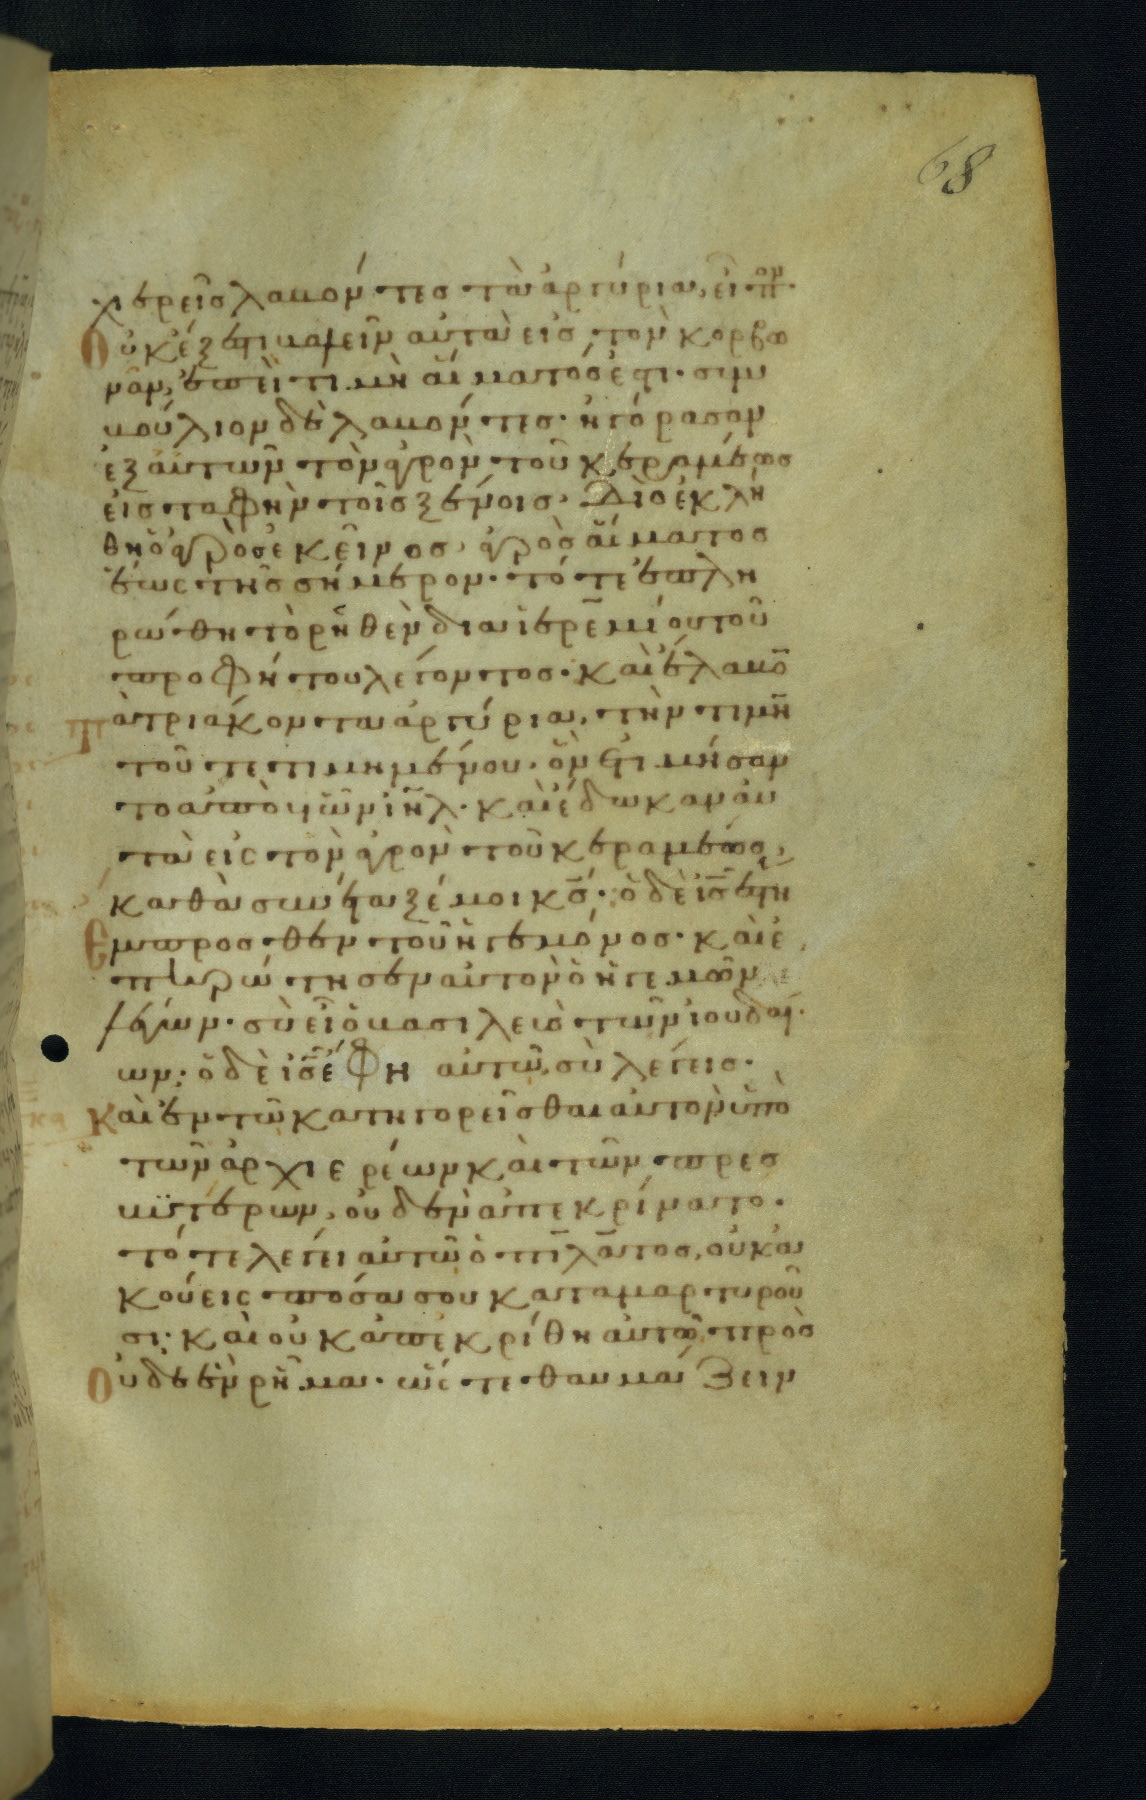 68
χιερεῖς λαβόντες τὰ ἀργύρια, εἶπον·
Οὐκ ἔξεστι βαλεῖν αὐτὰ εἰς τὸν κορβω
νᾶν, ἐπεὶ τιμὴ αἵματός ἐστι· συμ
βούλιον δὲ λαβόντες· ἠγόρασαν
ἐξ αὐτῶν τὸν ἀγρὸν τοῦ κεραμέως
εἰς ταφὴν τοῖς ξένοις· Διὸ ἐκλή
θη ὁ ἀγρὸς ἐκεῖνος, ἀγρὸς αἵματος
ἕως τῆς σήμερον· τότε ἐπλη
ρώθη τὸ ῥηθὲν διὰ ἱερεμίου τοῦ
προφήτου λέγοντος· καὶ ἔλαβο̄
τὰ τριάκοντα ἀργύρια, τὴν τιμὴ̄
τοῦ τετιμημένου· ὃν ἐτιμήσαν
το ἀπὸ υἱῶν ιηλ· καὶ ἔδωκαν αὐ
τὰ εἰς τὸν ἀγρὸν τοῦ κεραμέως,
καθὰ συνέταξέ μοι κς· ὁ δὲ ις ἔστη
Εμπροσθεν τοῦ ἡγεμόνος· καὶ ἐ
πηρώτησεν αὐτὸν ὁ ἡγεμὼν
λέγων· σὺ εἶ ὁ βασιλεὺς τῶν ἰουδαί
ων· ὁ δὲ ις ἔφη αὐτῶ, σὺ λέγεις·
Καὶ ἐν τῶ κατηγορεῖσθαι αὐτὸν ὑπὸ
τῶν ἀρχιερέων καὶ τῶν πρεσ
βϋτέρων, οὐδὲν ἀπεκρίνατο·
τότε λέγει αὐτῶ ὁ πιλᾶτος, οὐκ ἀ
κούεις πόσα σου καταμαρτυροῦ
σι· καὶ οὐκ ἀπεκρίθη αὐτῶ πρὸς
Οὐδὲ ἓν ῥῆμα· ὥστε θαυμάζειν